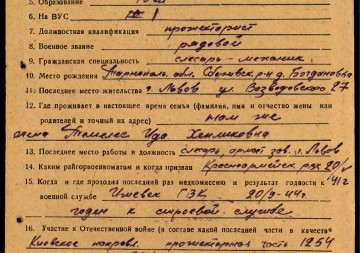 5. Образование
6. На ВУС 1
7. Должностная квалификация прожекторист
8. Военное звание рядовой
9. Гражданская специальность слесарь-механик
10. Место рождения Тарнополь. обл. р-н д. Богдановка
11. Последнее место жительства г. Львов ул. 27
12. Где проживает в настоящее время семья (фамилия, имя и отчество жены или
родителей и точный их адрес) там же
жена Хемиковна
13. Последнее место работы и должность слесарь, зав. г. Львов
14. Каким райгорвоенкоматом и когда призван Красноармейск рвк 20/V 41 г.
15. Когда и где проходил последний раз медкомиссию и результат годности к
военной службе Ижевск ГВК 20/9-44 г.
годен к строевой службе
16. Участие в Отечественной войне (в составе какой последней части в качестве
Киевское направл. прожекторная часть 1254